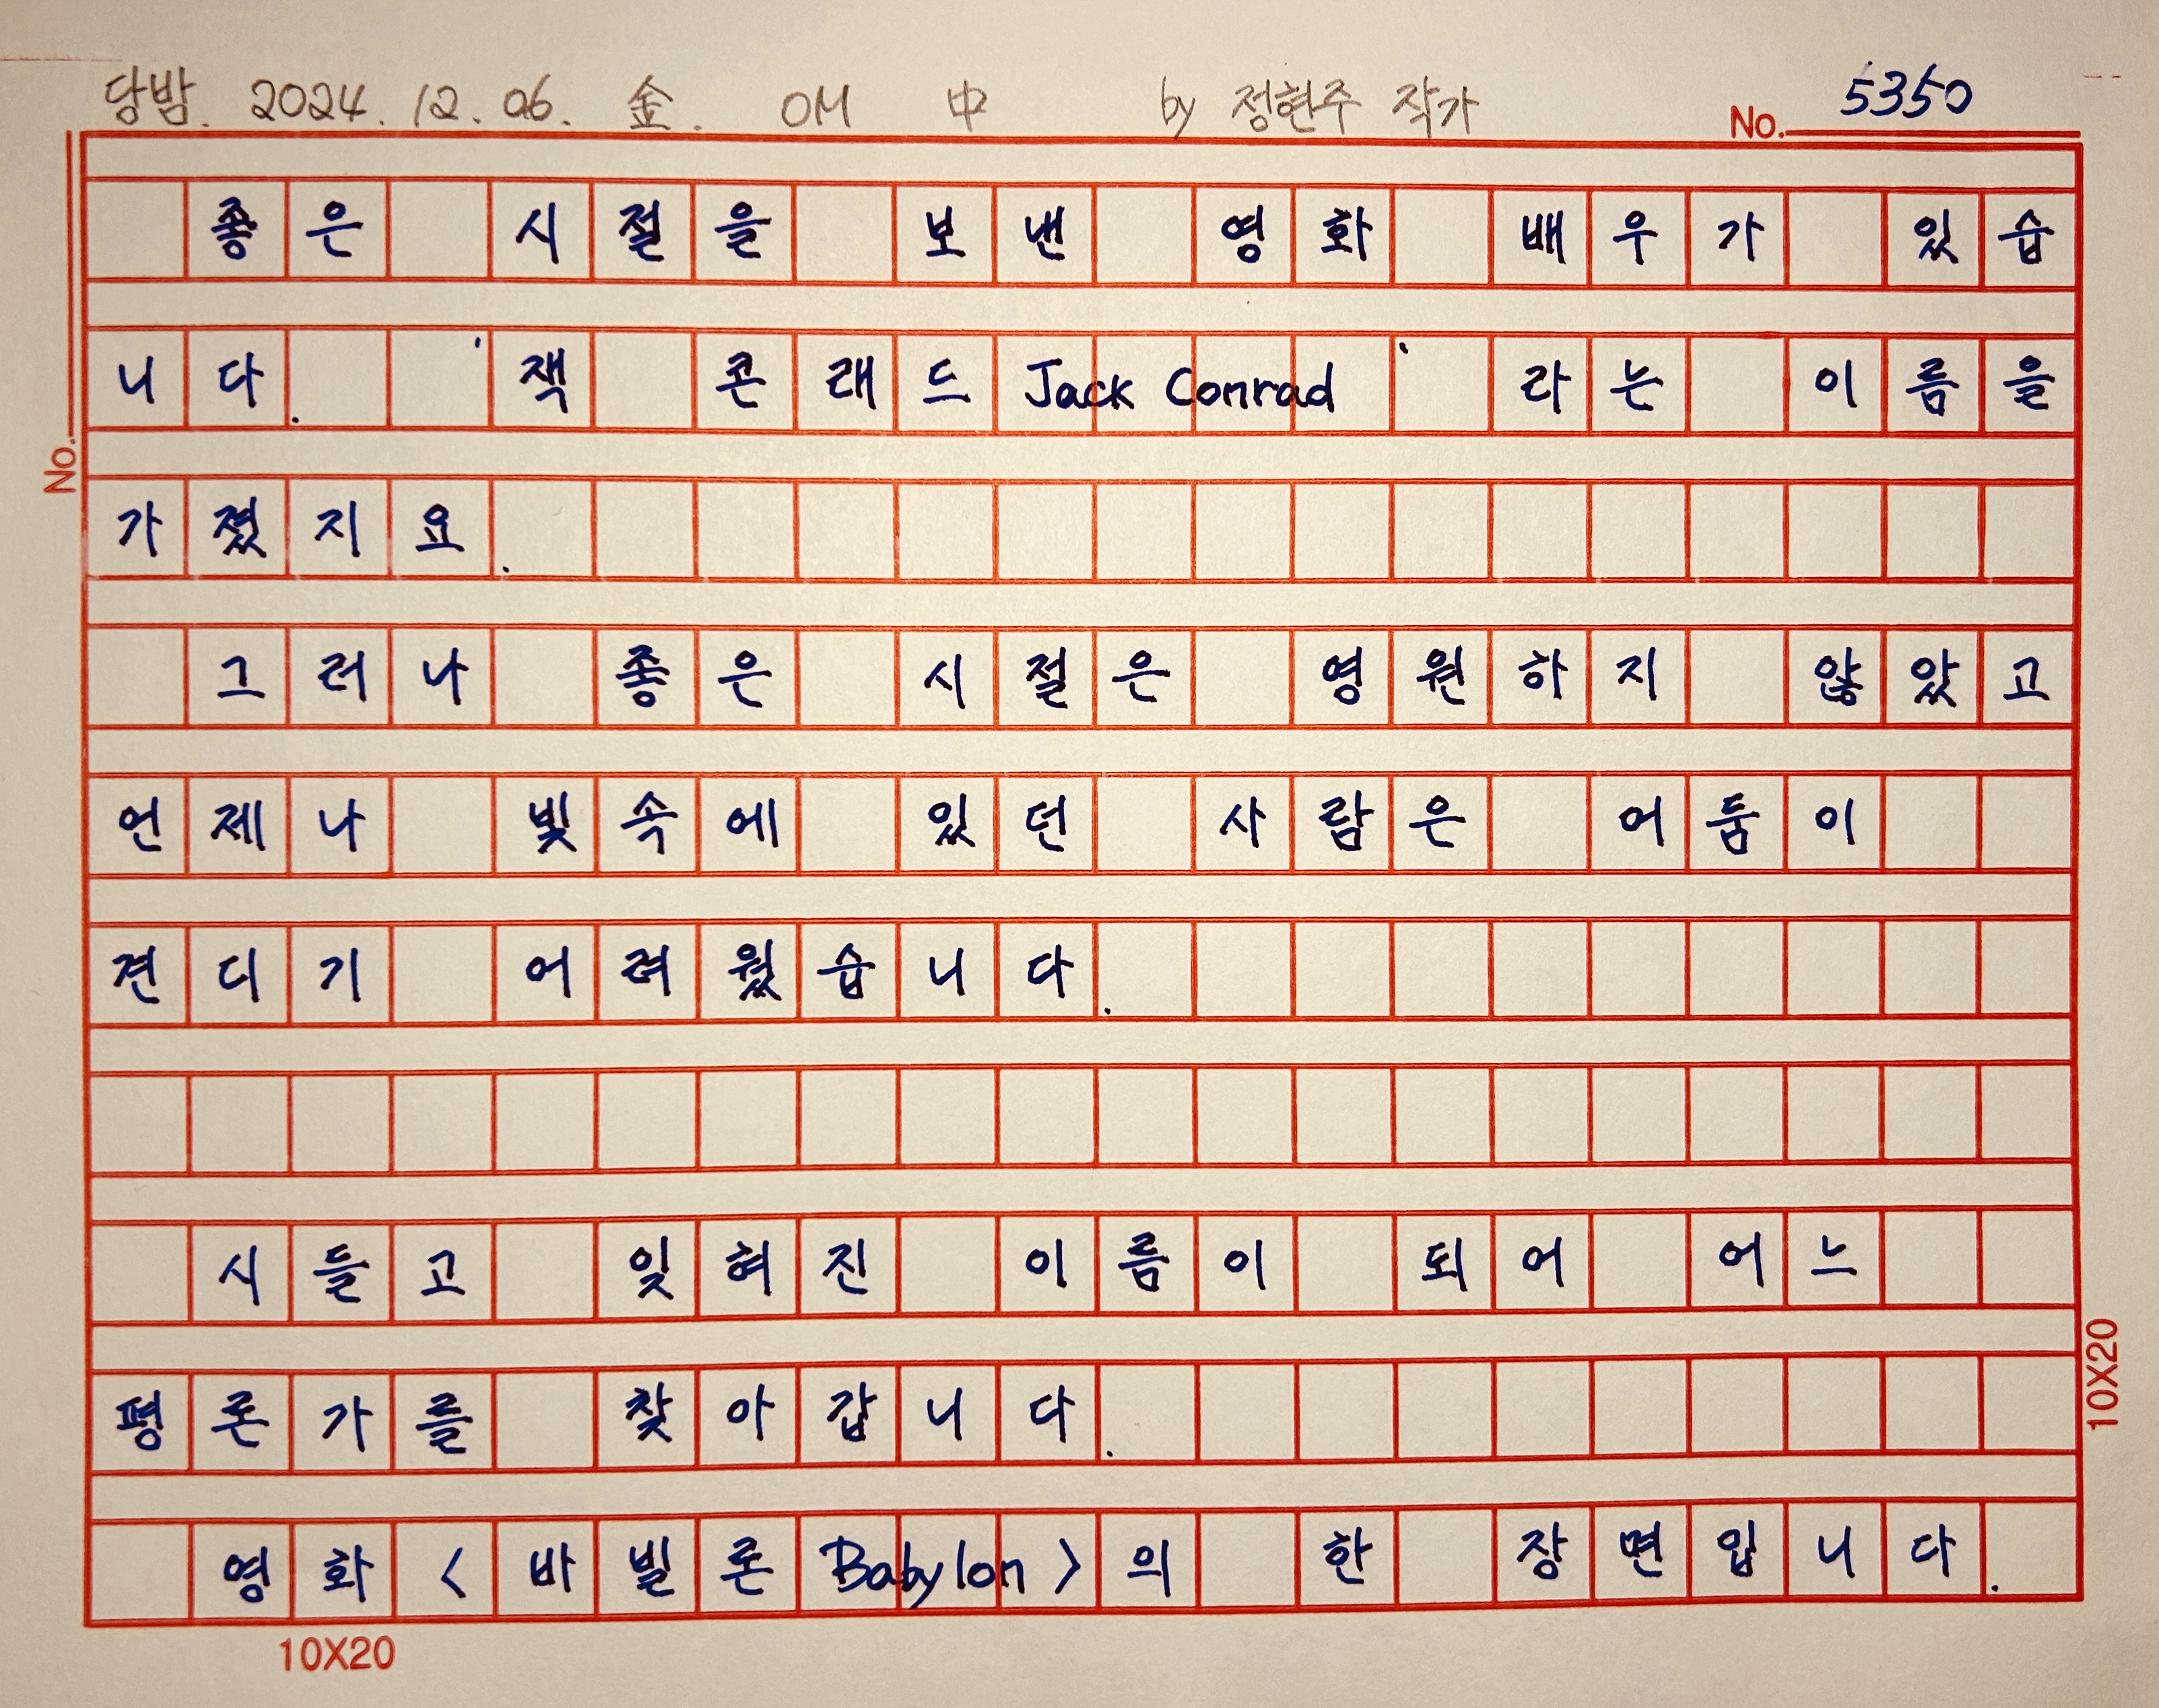 당밤. 2024. 12. 06. 金. OM 中 by 정현주 작가 No. 5350
좋은 시절을 보낸 영화 배우가 있습
니다. '잭 콘래드 Jack Conrad' 라는 이름을
가졌지요.
그러나 좋은 시절은 영원하지 않았고
언제나 빛속에 있던 사람은 어둠이
견디기 어려웠습니다.
시들고 잊혀진 이름이 되어 어느
평론가를 찾아갑니다.
영화 <바빌론 Babylon>의 한 장면입니다.
No.
10X20
10X20